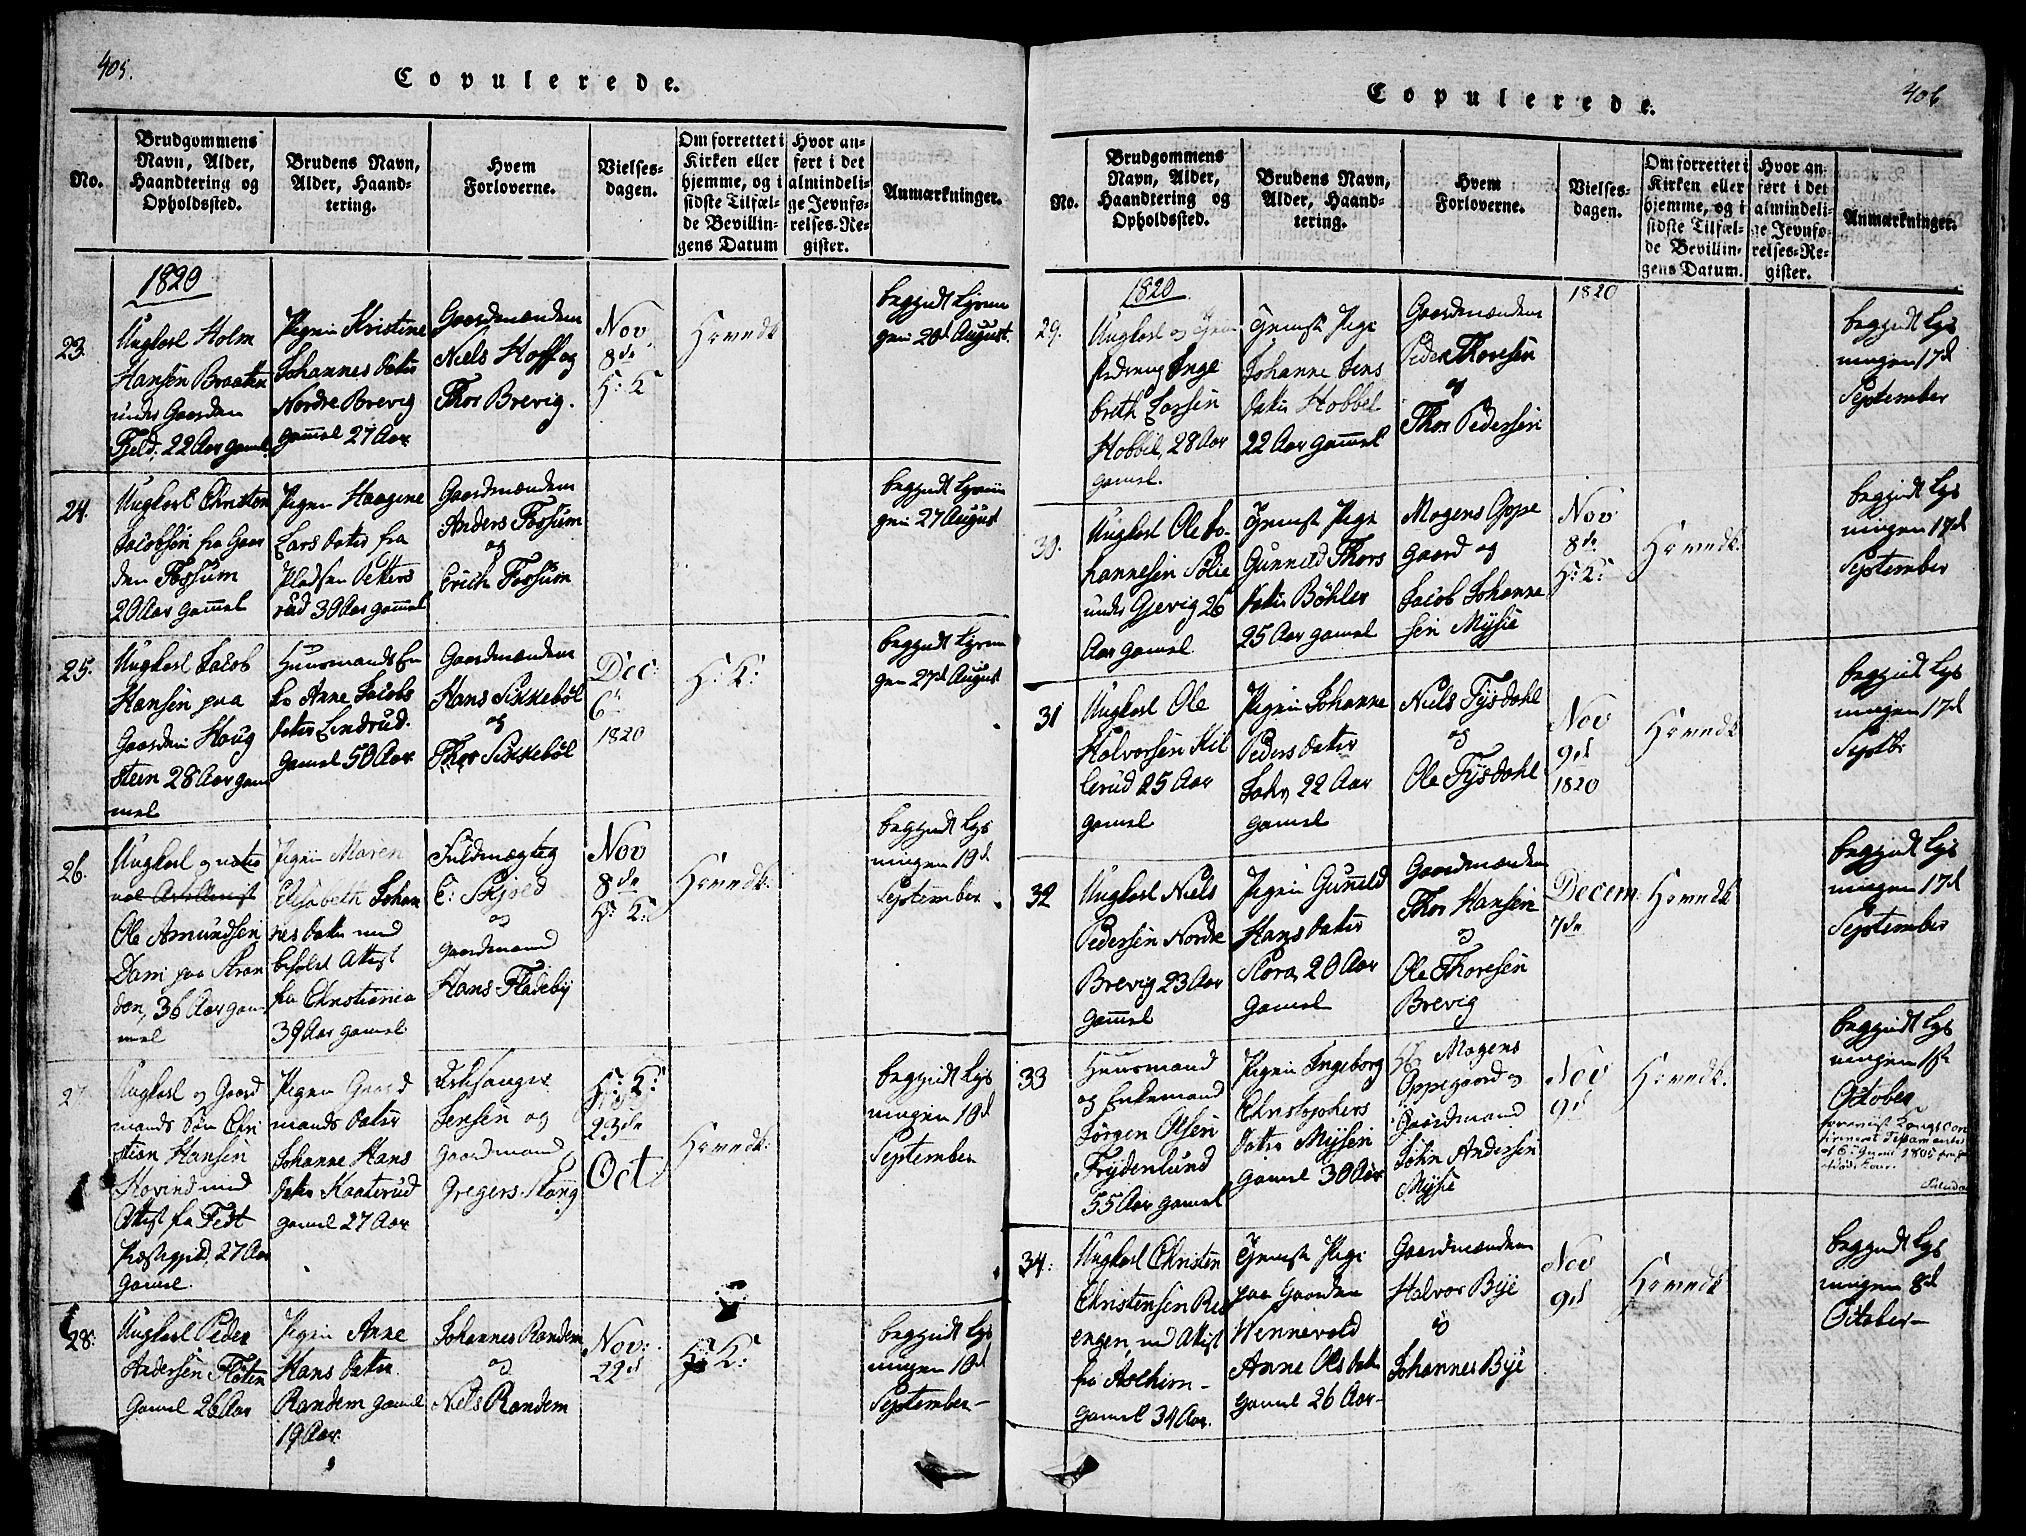 405.
Copulerede.
No.
Brudgommens
Navn, Alder,
Haandtering og
Opholdssted.
Brudens Navn,
Alder, Haand-
tering.
Hvem
Forloverne.
Vielses-
dagen.
Om forrettet i
Kirken eller
hjemme, og i
sidste Tilfæl-
de Bevillin-
gens Datum
Hvor an-
ført i det
almindeli-
ge Jevnfø-
relses-Re-
gister.
Anmærkninger.
1820
23.
Ungkarl Holm
Hansen Braaten
under Gaarden
Fjeld, 22 Aar gaml
Pigen Kristine
Johannes datter
Nordre Brevig
gammel 27 Aar
Gaardmændene
Niels Hoff og
Thor Brevig.
Nov.
8de
H: K
begyndt Lysnin
gen 20d August.
24.
Ungkarl Christen
Jacobsen fra Gaar
den Fossum
20 Aar gammel
Pigen Haagine
Lars datter fra
Pladsen Petters
rud 30 Aar gammel
Gaardmændene
Anders Fossum
og
Erich Fossum
begyndt Lysnin
gen 27 August
25.
Ungkarl Jacob
Hansen paa
Gaarden Haug
steen 28 Aar gam
mel
Huusmands En
ke Anne Jacobs
datter Lindrud.
Gamel 50 Aar
Gaardmændene
Hans Sikkebøl
og
Thor Sikkebøl
Dec:
6te
1820
H: K:
begyndt Lysnin
gen 27d August
26.
Ungkarl og
Ole Amundsen
Dam paa Stran
den, 36 Aar gam
mel
Pigen Maren
Elisabeth Johan
nes datter med
Attest
fra Christiania
39 Aar gamel
Fuldmægtig
E: Schjold
og
Gaardmand
Hans Fladeby
Nov
8de
H: K:
begyndt Lys
ningen 10d
September
27
Ungkarl og Gaard
mands Søn Chri
stian Hansen
Hovind med
Attest fra Fedt
Præstegjeld, 27 Aar
Gamel.
Pigen Gaard
mands datter
Johanne Hans
datter Kaaterud
gamel 27 Aar
Jensen og
Gaardmand
Gregers Stang
H: K:
23de
Oct
begyndt Lys
ningen 10d
September
28.
Ungkarl Peder
Andersen Fløten
Gamel 26 Aar
Pigen Anne
Hans datter
Randem gamel
19 Aar.
Johannes Randem
og
Niels Randem
Nov:
22d
H: K:
begyndt Lys
ningen 10d
September-
406
Copulerede.
No.
Brudgommens
Navn, Alder,
Haandtering og
Opholdssted.
Brudens Navn,
Alder, Haand-
tering.
Hvem
Forloverne.
Vielses-
dagen.
Om forrettet i
Kirken eller
hjemme, og i
sidste Tilfæl-
de Bevillin-
gens Datum.
Hvor an-
ført i det
almindeli-
ge Jevnfø-
relses-Re-
gister.
Anmærkninger.
1820
1820
29.
Ungkarl og
Inge
breth Larsen
Hobbel, 28 Aar
gamel.
Pige
Johanne Jens
datter Hobbel
22 Aar gammel
Gaardmændene
Peder Thoresen
og
Thor Pedersen
begyndt Lys
ningen 17d
September
30.
Ungkarl Ole Jo-
hannesen Solie
under Gjevig 26
Aar gamel
Pige
Gunnild Thors
datter Bøhler
25 Aar gamel
Mogens Oppe
gaard og
Jacob Johanne
sen Mysie
Nov
8de
H: K:
begyndt Lys
ningen 17d
September
31
Ungkarl Ole
Halvorsen Kil
lerud 25 Aar
gamel
Pigen Johanne
Peders datter
22 Aar
gamel
Niels Tysdahl
og
Ole Tysdahl
Nov
9d
1820
begyndt Lys
ningen 17d
Septbr
32
Ungkarl Niels
Pedersen Nordre
Brevig 23 Aar
gammel
Pigen Gunild
Hans datter
Stora, 20 Aar
gamel
Gaardmændene
Thor Hansen
og
Ole Thoresen
Brevig
Decem
7de
begyndt Lys
ningen 17d
September
33
Huusmand
og Enkemand
Jørgen Olsen
Frydenlund
55 Aar gamel
Pigen Ingeborg
Christophers
datter Mysen
gamel 30 Aar
Mogens
Oppegaard og
Gaardmand
John Andersen
Mysie
Nov
9d
begyndt Lys
ningen 1ste
October
34:
Ungkarl Christen
Christensen Røe
engen, med Attest
fra
gamel 34 Aar.
Pige
paa Gaarden
Wennevold
Anne Ols datter
gamel 26 Aar-
Gaardmændene
Halvor Bye
og
Johannes Bye
Nov
9d
begyndt Lys
ningen 8d
October-